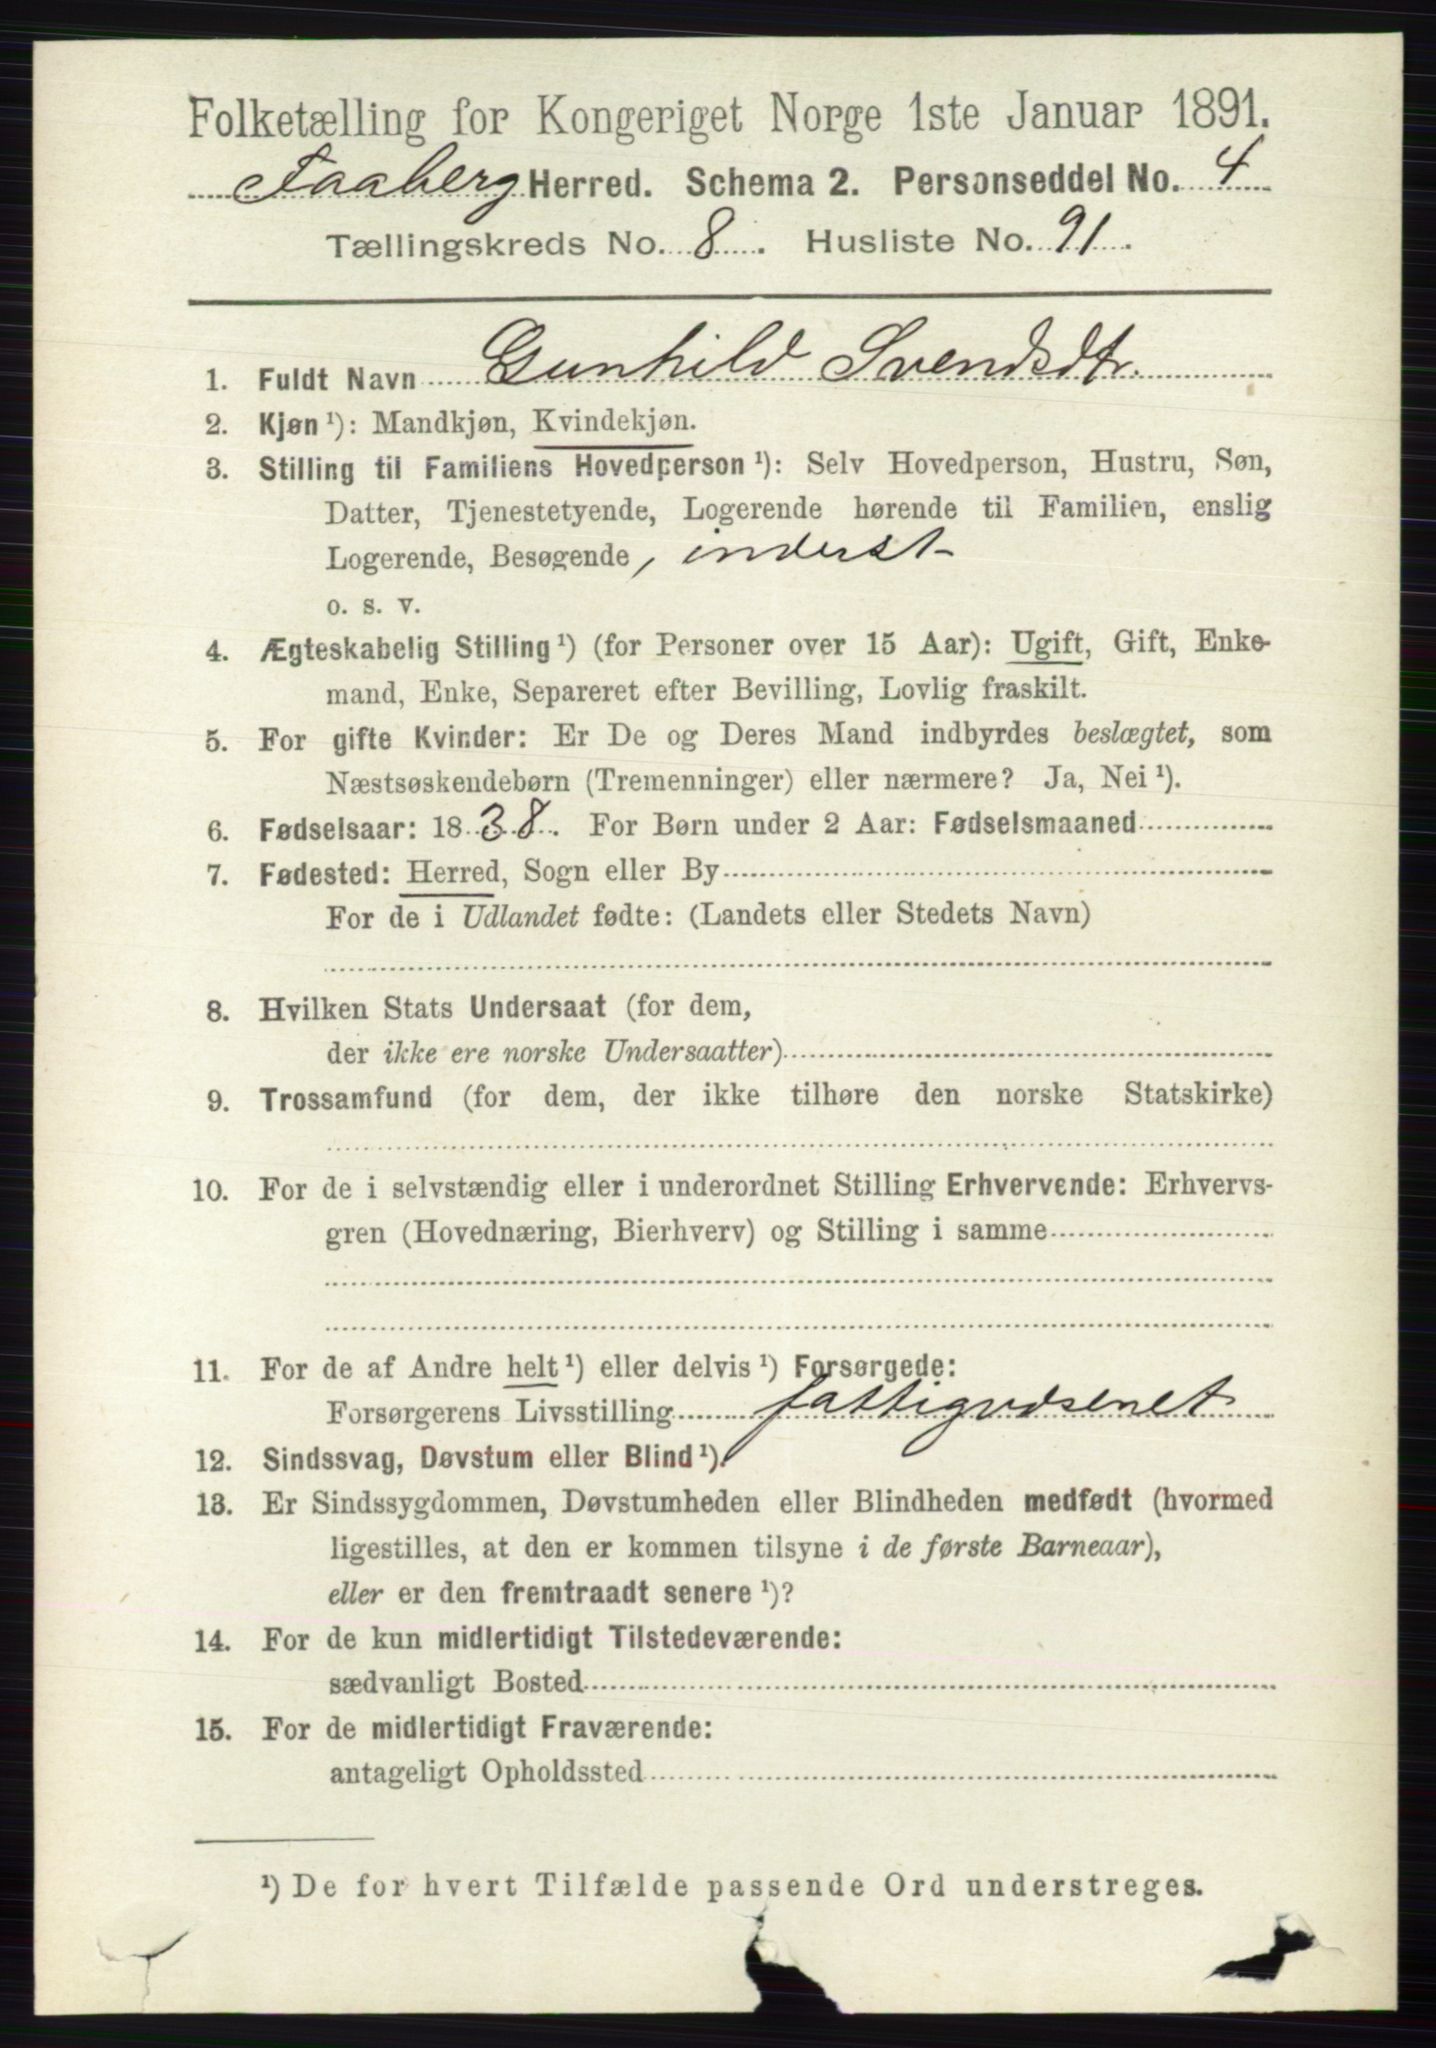 Folketælling for Kongeriget Norge 1ste Januar 1891.
Faaberg Herred. Schema 2. Personseddel No. 4
Tællingskreds No. 8. Husliste No. 91.
1. Fuldt Navn Gunhild Svendsdtr.
2. Kjøn ¹): Mandkjøn, Kvindekjøn.
3. Stilling til Familiens Hovedperson ¹): Selv Hovedperson, Hustru, Søn,
Datter, Tjenestetyende, Logerende hørende til Familien, enslig
Logerende, Besøgende, inderst
o. s. v.
4. Ægteskabelig Stilling ¹) (for Personer over 15 Aar): Ugift, Gift, Enke-
mand, Enke, Separeret efter Bevilling, Lovlig fraskilt.
5. For gifte Kvinder: Er De og Deres Mand indbyrdes beslægtet, som
Næstsøskendebørn (Tremenninger) eller nærmere? Ja, Nei ¹).
6. Fødselsaar: 1838. For Børn under 2 Aar: Fødselsmaaned
7. Fødested: Herred, Sogn eller By
For de i Udlandet fødte: (Landets eller Stedets Navn)
8. Hvilken Stats Undersaat (for dem,
der ikke ere norske Undersaatter)
9. Trossamfund (for dem, der ikke tilhøre den norske Statskirke)
10. For de i selvstændig eller i underordnet Stilling Erhvervende: Erhvervs-
gren (Hovednæring, Bierhverv) og Stilling i samme
11. For de af Andre helt ¹) eller delvis ¹) Forsørgede:
Forsørgerens Livsstilling fattigvdsenet
12. Sindssvag, Døvstum eller Blind ¹).
13. Er Sindssygdommen, Døvstumheden eller Blindheden medfødt (hvormed
ligestilles, at den er kommen tilsyne i de første Barneaar),
eller er den fremtraadt senere ¹)?
14. For de kun midlertidigt Tilstedeværende:
sædvanligt Bosted
15. For de midlertidigt Fraværende:
antageligt Opholdssted
¹) De for hvert Tilfælde passende Ord understreges.